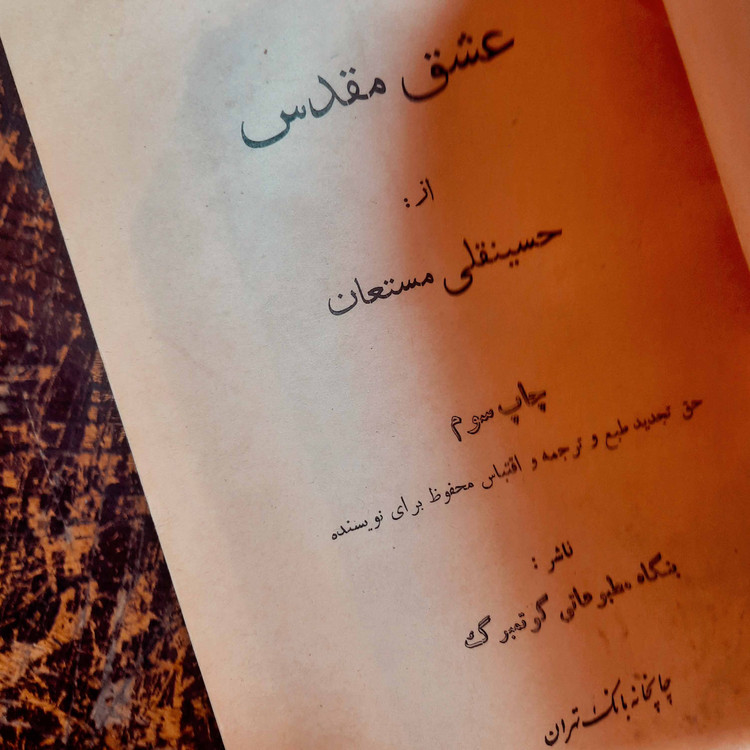 عشق مقدس
از:
حسینقلی مستعان
چاپ سوم
حق تجدید طبع و ترجمه و اقتباس محفوظ برای نویسنده
ناشر:
بنگاه مطبوعاتی گوتمبرگ
چاپخانه بانک تهران